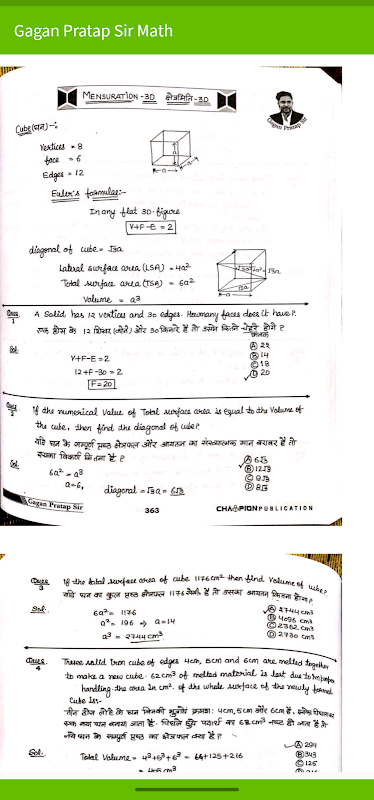 Gagan Pratap Sir Math
MENSURATION-3D क्षेत्रमिति-3D
Gagan Pratap Sir
Cube (घन) -:
Vertices = 8
face = 6
Edges = 12
Euler's formulae:-
In any flat 3D-figure
V+F-E = 2
diagonal of cube = √3a
Lateral surface area (LSA) = 4a²
Total surface area (TSA) = 6a²
Volume = a³
Ques 1 A Solid has 12 vertices and 30 edges. How many faces does it have?
एक ठोस के 12 शिखर (कोने) और 30 किनारे हैं तो उसमें कितने चेहरे होंगे ?
फलक
Sol.
V+F-E = 2
12+F-30 = 2
F = 20
Ⓐ 22
Ⓑ 14
Ⓒ 18
Ⓓ 20
Ques 2 If the numerical value of Total surface area is equal to the Volume of
the cube, then find the diagonal of cube?
यदि घन के सम्पूर्ण पृष्ठ क्षेत्रफल और आयतन का संख्यात्मक मान बराबर है तो
इसका विकर्ण कितना है ?
Sol.
6a² = a³
a=6,
diagonal = √3a = 6√3
Ⓐ 6√3
Ⓑ 12√3
Ⓒ 9√3
Ⓓ 8√3
Gagan Pratap Sir
363
CHAMPION PUBLICATION
Ques 3 If the total surface area of cube 1176 cm² then find Volume of cube?
यदि घन का कुल पृष्ठ क्षेत्रफल 1176 सेमी² है तो उसका आयतन कितना होगा?
Sol.
6a² = 1176
a² = 196 → a=14
a³ = 2744 cm³
Ⓐ 2744 cm³
Ⓑ 4096 cm³
Ⓒ 2352 cm³
Ⓓ 2730 cm³
Ques 4 Three solid Iron cube of edges 4cm, 5cm and 6cm are melted together
to make a new cube. 62cm³ of melted material is lost due to improper
handling. the area In cm². of the whole surface of the newly formed
Cube is:-
तीन ठोस लोहे के घन जिनकी भुजाएँ क्रमशः 4cm, 5cm और 6cm है,
एक नया घन बनाया जाता है. पदार्थ का 62cm³ नष्ट हो जाता है
घन के सम्पूर्ण पृष्ठ का क्षेत्रफल क्या है ?
Sol.
Total Volume = 4³+5³+6³ = 64+125+216
= 405 cm³
Ⓐ 294
Ⓑ 343
Ⓒ 125